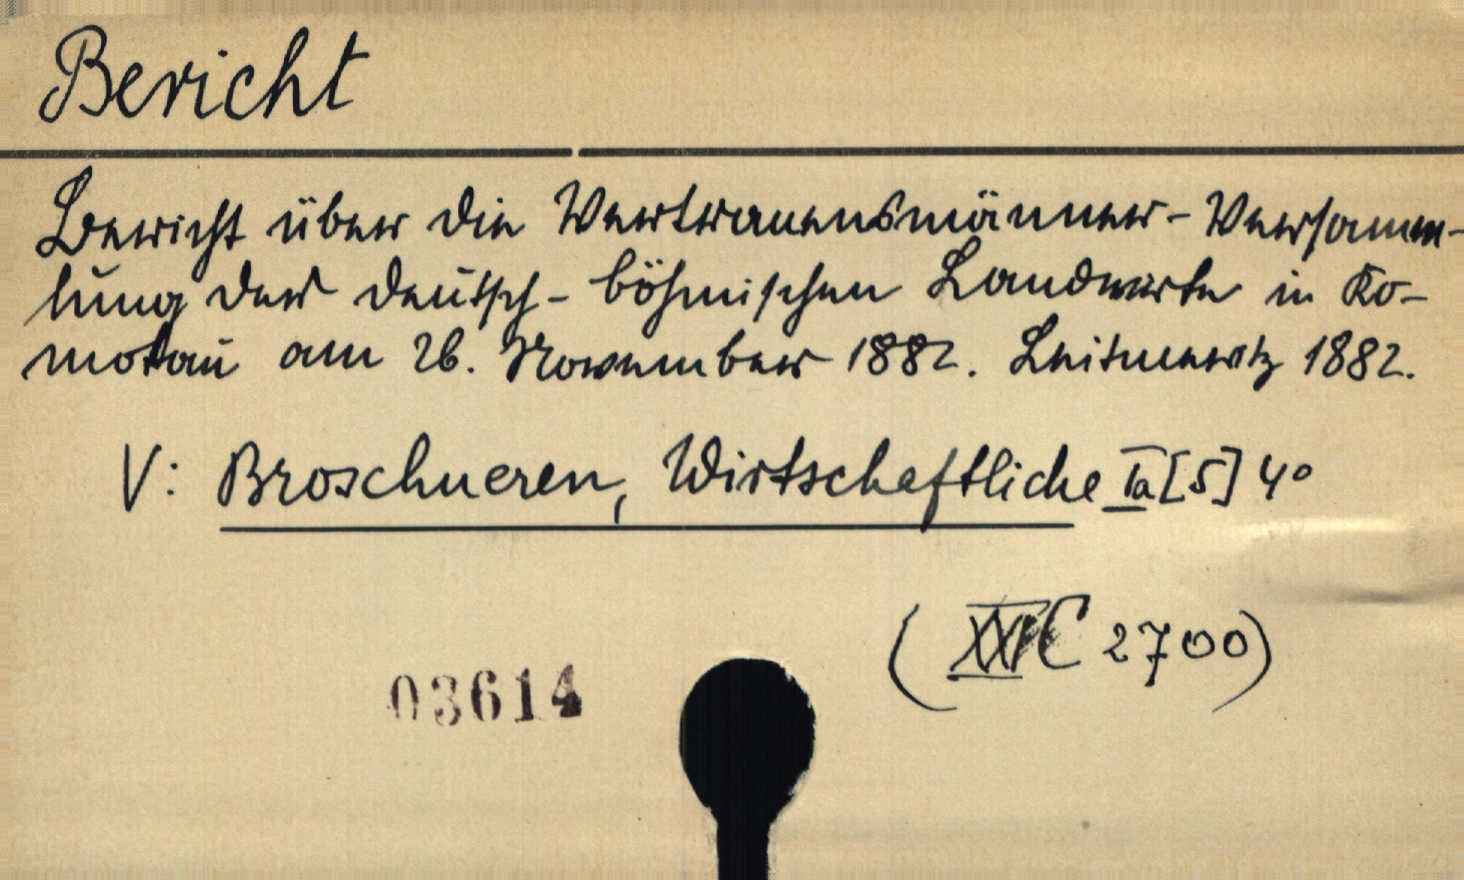 Bericht
Bericht über die Vertrauensmänner-Versamm-
lung der deutsch-böhmischen Landwirte in Ko-
motau am 26. November 1882. Leitmeritz 1882.
V: Broschueren, Wirtschaftliche Ia [5] 4°
( C 2700)
03614